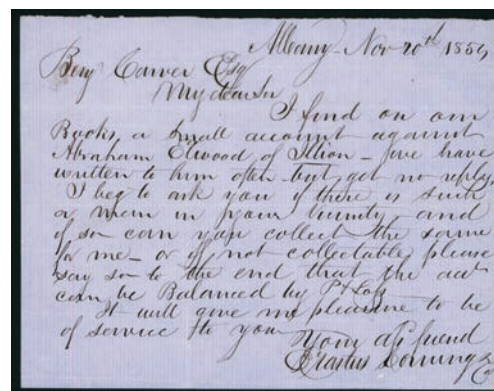 Albany Nov 20th 185
Benj Carver Esq
My dear Sir
I find on our
Books, a small account against
Abraham Elwood of Illion - have
written to him often but get no reply,
I beg to ask you if there is such
a man in your vicinity and
if so can you collect the same
for me - or if not collectable please
say so to the end that the acct
can be Balanced by P & Loss
It will give me pleasure to be
of service to you
Your friend
Erastus Corning & Co